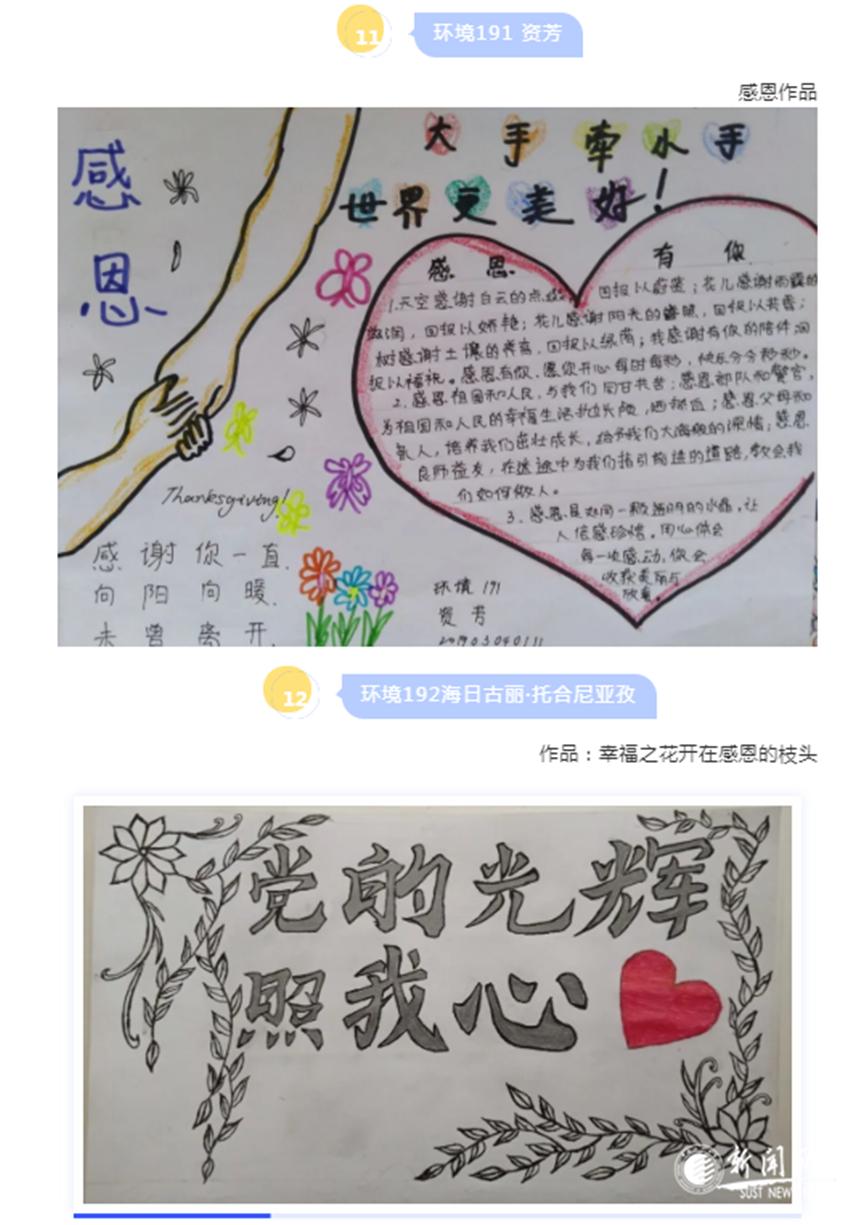 11
环境191 资芳
感恩作品
感恩
大手牵小手
世界更美好!
感恩有你
1.天空感谢白云的点缀,回报以蔚蓝;花儿感谢雨露的
滋润,回报以娇艳;花儿感谢阳光的
树感谢土壤的养育,回报以绿荫;我感谢有你的陪伴,回
报以福祝。感恩有你,愿您开心每时每秒,快乐分分秒秒。
2.感恩祖国和人民,与我们同甘共苦;感恩部队和警官,
为祖国和人民的幸福生活抛头颅,洒热血;感恩父母和
亲人,培养我们茁壮成长,给予我们大海般的深情;感恩
良师益友,在迷途中为我们指引前进的道路,教会我
们如何做人。
3.感恩是如同一颗透明的水晶,让
人倍感珍惜。用心体会
每一次感动,你会
收获美丽与
欣喜。
Thanksgiving!
感谢你一直
向阳向暖
未曾离开
环境191
资芳
12
环境192海日古丽·托合尼亚孜
作品:幸福之花开在感恩的枝头
党的光辉
照我心
新闻
SUST NEW